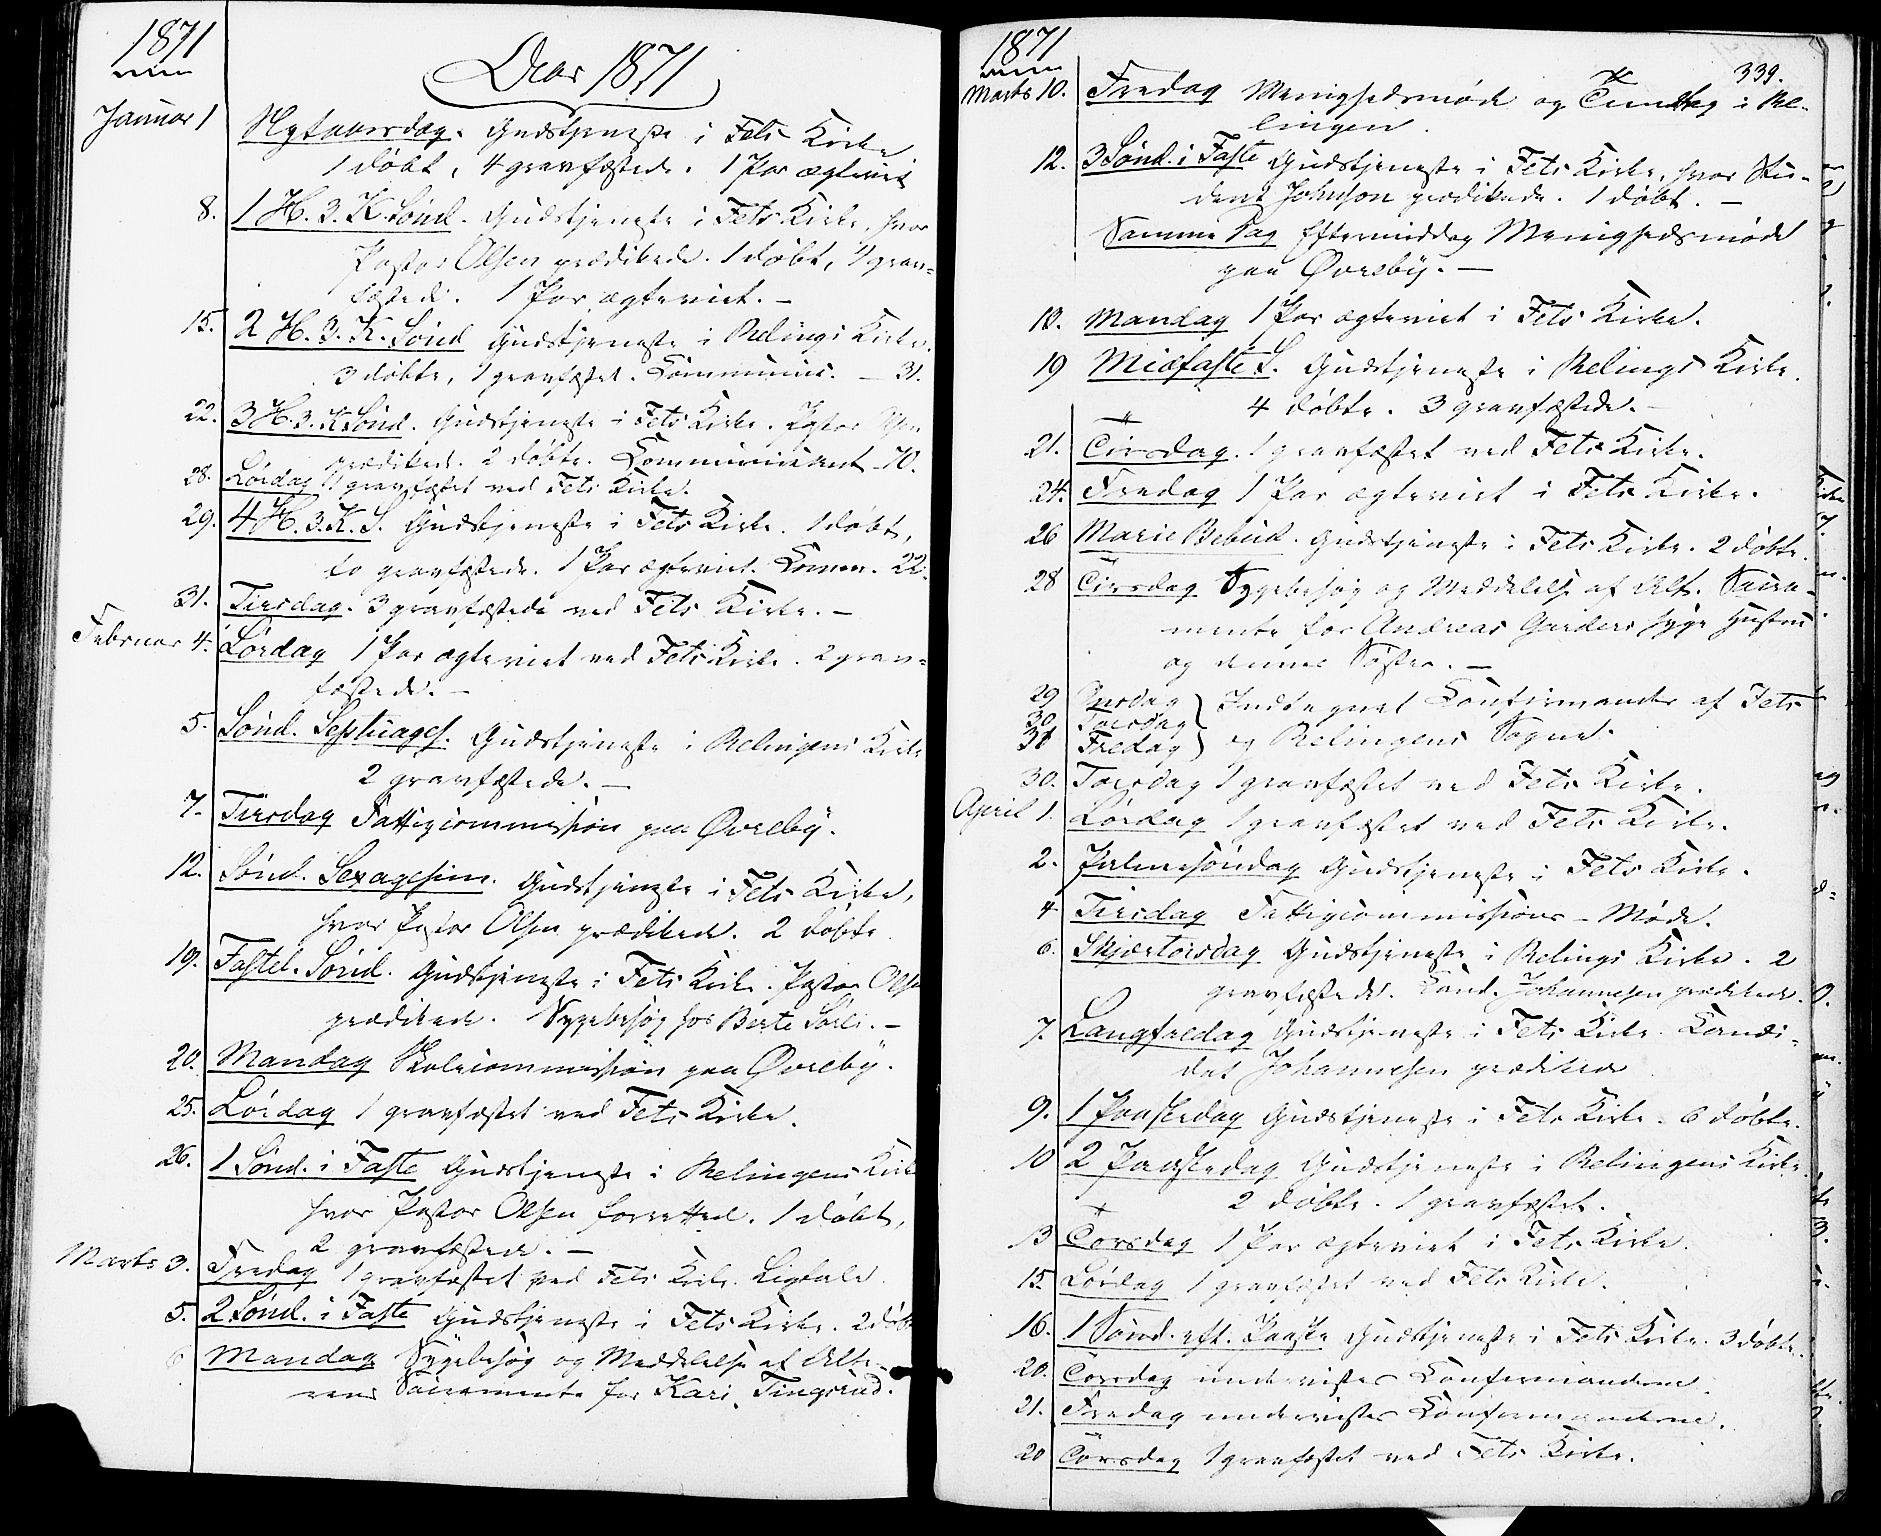 1871
Aar 1871
Januar 1
Nytaarsdag. Gudstjeneste i Fets Kirke
1 døbt, 4 gravfæstede. 1 Par ægteviet
8. 1 H. 3. K. Sönd. Gudstjeneste i Fets Kirke, hvor
Pastor Olsen prædikede. 1 døbt, 1 grav-
fæstede. 1 Par ægteviet. —
15. 2 H. 3. K. Sönd Gudstjeneste i Relings Kirke.
3 døbte, 1 gravfæstet. Communic. — 31.
22. 3 H. 3. K Sönd. Gudstjeneste i Fets Kirke. Pastor Olsen
prædikede. 2 døbte. Communicant 70.
28. Lørdag 1 gravfæstet ved Fets Kirke.
29. 4 H. 3. K. S. Gudstjeneste i Fets Kirke. 1 døbt,
to gravfæstede. 1 Par ægteviet. Comm. 22.
31. Tirsdag. 3 gravfæstede ved Fets Kirke. —
Februar 4. Lørdag 1 Par ægteviet ved Fets Kirke. 2 grav-
fæstede. —
5. Sönd. Septuages. Gudstjeneste i Relingens Kirke
2 gravfæstede. —
7. Tirsdag Fattigcommission paa Øvreby.
12. Sönd. Sexagesim. Gudstjeneste i Fets Kirke,
hvor Pastor Olsen prædikede. 2 døbte
19. Fastel. Sönd. Gudstjeneste i Fets Kirke. Pastor Olsen
prædikede. Sygebesøg hos Berte Sorli. —
20. Mandag Skolecommission paa Øvreby.
25. Lørdag 1 gravfæstet ved Fets Kirke.
26. 1 Sönd. i Faste Gudstjeneste i Relingens Kirke
hvor Pastor Olsen forrettede. 1 døbt,
2 gravfæstede. —
Marts 3. Fredag 1 gravfæstet ved Fets Kirke. Ligtale.
5. 2 Sönd. i Faste Gudstjeneste i Fets Kirke. 2 døbt
6 Mandag Sygebesøg og Meddelelse af Alte-
rens Sacramente for Kari Tingsrud.
1871
339.
Marts 10. Fredag Menighedsmøde og i Re-
lingen.
12. 3 Sönd. i Faste Gudstjeneste i Fets Kirke, hvor Stu-
dent Johnson prædikede. 1 døbt. —
Samme Dag Eftermiddag Menighedsmøde
paa Øvreby. —
Mandag 1 Par ægteviet i Fets Kirke.
19 Midfaste S. Gudstjeneste i Relings Kirke.
4 døbte. 3 gravfæstede. —
21. Tirsdag. 1 gravfæstet ved Fets Kirke.
24. Fredag 1 Par ægteviet i Fets Kirke.
26 Marie Bebud. Gudstjeneste i Fets Kirke. 2 døbte.
28 Tirsdag Sygebesøg og Meddelelse af Alt. Sacra-
mente for Andreas Garders syge Hustru
og dennes Søster. —
29 Onsdag } Indtegnet Confirmander af Fets
30 Torsdag
31 Fredag } og Relingens Sogne.
30. Torsdag 1 gravfæstet ved Fets Kirke.
April 1. Lørdag 1 gravfæstet ved Fets Kirke.
2. Palmesöndag Gudstjeneste i Fets Kirke.
4 Tirsdag Fattigcommissions-Møde.
6. Skjærtorsdag Gudstjeneste i Relings Kirke. 2
gravfæstede. Cand. Johannesen prædikede.
7. Langfredag Gudstjeneste i Fets Kirke. Candi-
dat Johannesen prædikede
9. 1 Paaskedag Gudstjeneste i Fets Kirke. 6 døbte.
10 2 Paaskedag Gudstjeneste i Relingens Kirke.
2 døbte. 1 gravfæstet.
13 Torsdag 1 Par ægteviet i Fets Kirke.
15. Lørdag 1 gravfæstet ved Fets Kirke.
16. 1 Sönd. eft. Paaske Gudstjeneste i Fets Kirke. 3 døbte.
20. Torsdag undervistes Confirmanderne.
21. Fredag undervistes Confirmanderne.
20 Torsdag 1 gravfæstet ved Fets Kirke.